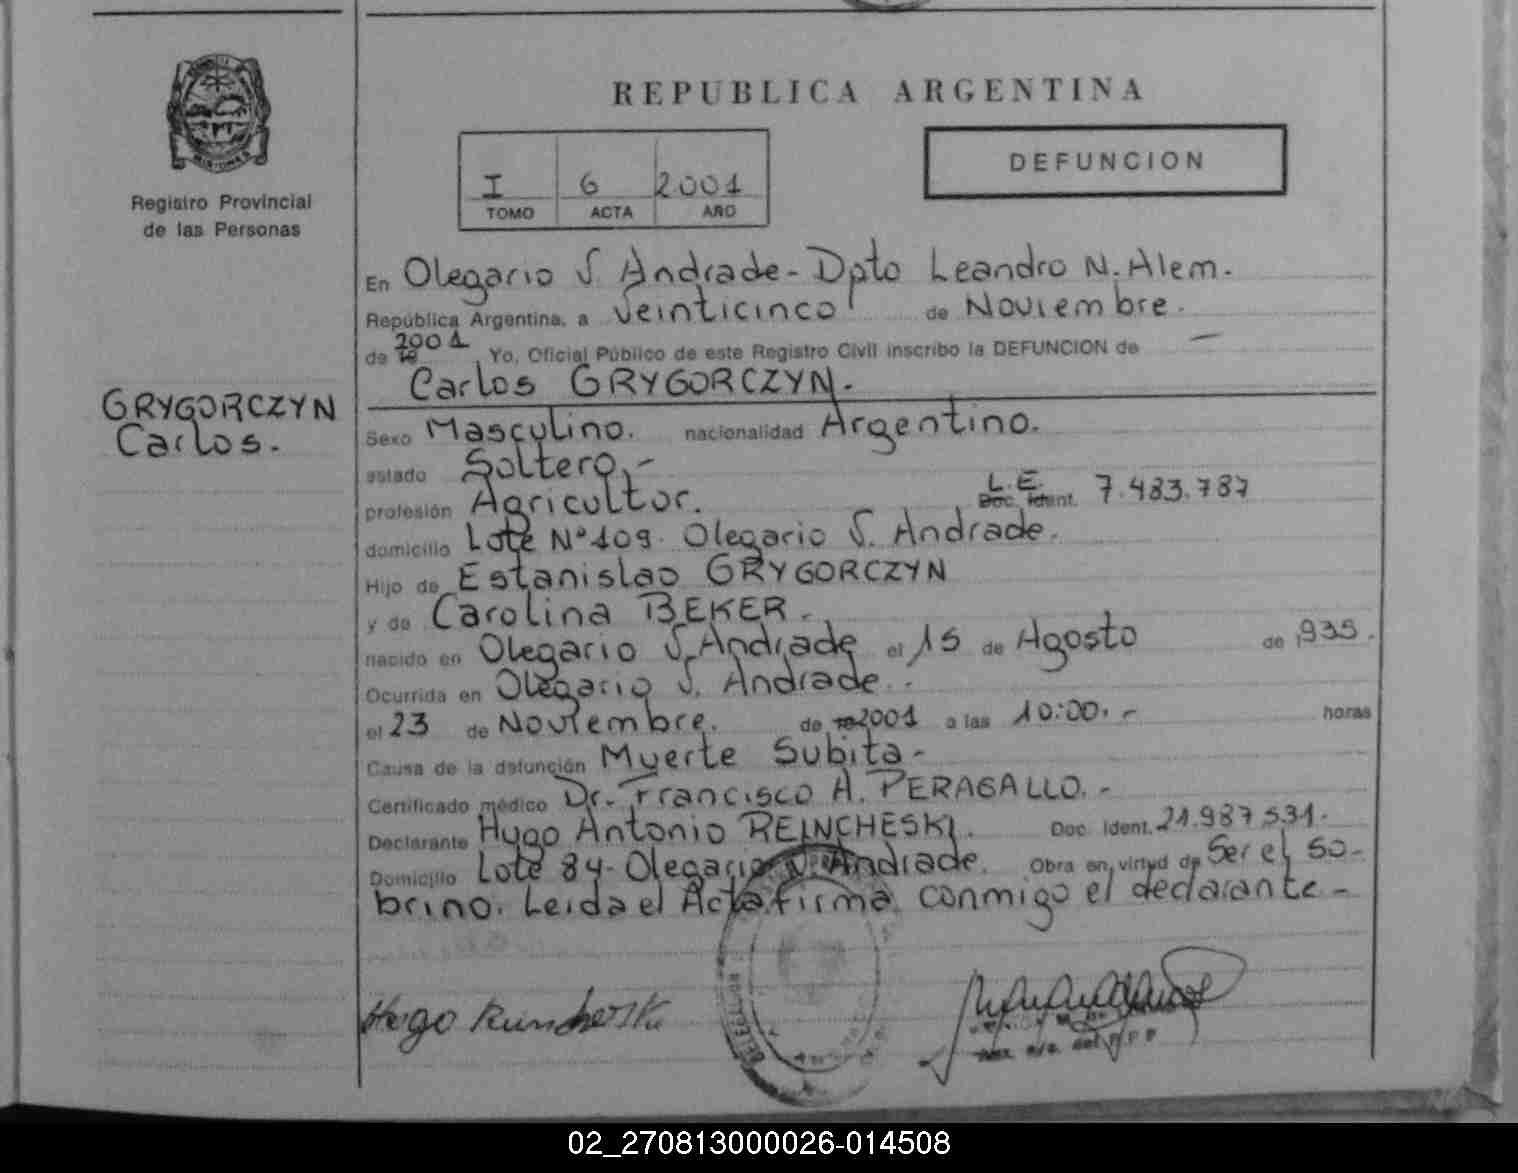 REPUBLICA ARGENTINA
MISIONES
Registro Provincial
de las Personas
I 6 2001
TOMO ACTA AÑO
DEFUNCION
En Olegario V. Andrade - Dpto Leandro N. Alem.
República Argentina, a Veinticinco de Noviembre.
de 19 2001, Yo, Oficial Público de este Registro Civil inscribo la DEFUNCION de —
Carlos GRYGORCZYN.
GRYGORCZYN
Carlos.
Sexo Masculino. nacionalidad Argentino.
estado Soltero.-
profesión Agricultor. L.E. Doc. Ident. 7.483.787
domicilio Lote Nº 109. Olegario V. Andrade.
Hijo de Estanislao GRYGORCZYN
y de Carolina BEKER.
nacido en Olegario V. Andrade el 15 de Agosto de 1935.
Ocurrida en Olegario V. Andrade..
el 23 de Noviembre. de 19 2001 a las 10:00.- horas
Causa de la defunción Muerte Subita-
Certificado médico Dr. Francisco A. PERAGALLO.-
Declarante Hugo Antonio REINCHESKI. Doc. Ident. 21.987531.
Domicilio Lote 84- Olegario V. Andrade. Obra en virtud de Ser el so-
brino. Leida el Acta, firma conmigo el declarante-
Hugo Reincheski
02_270813000026-014508